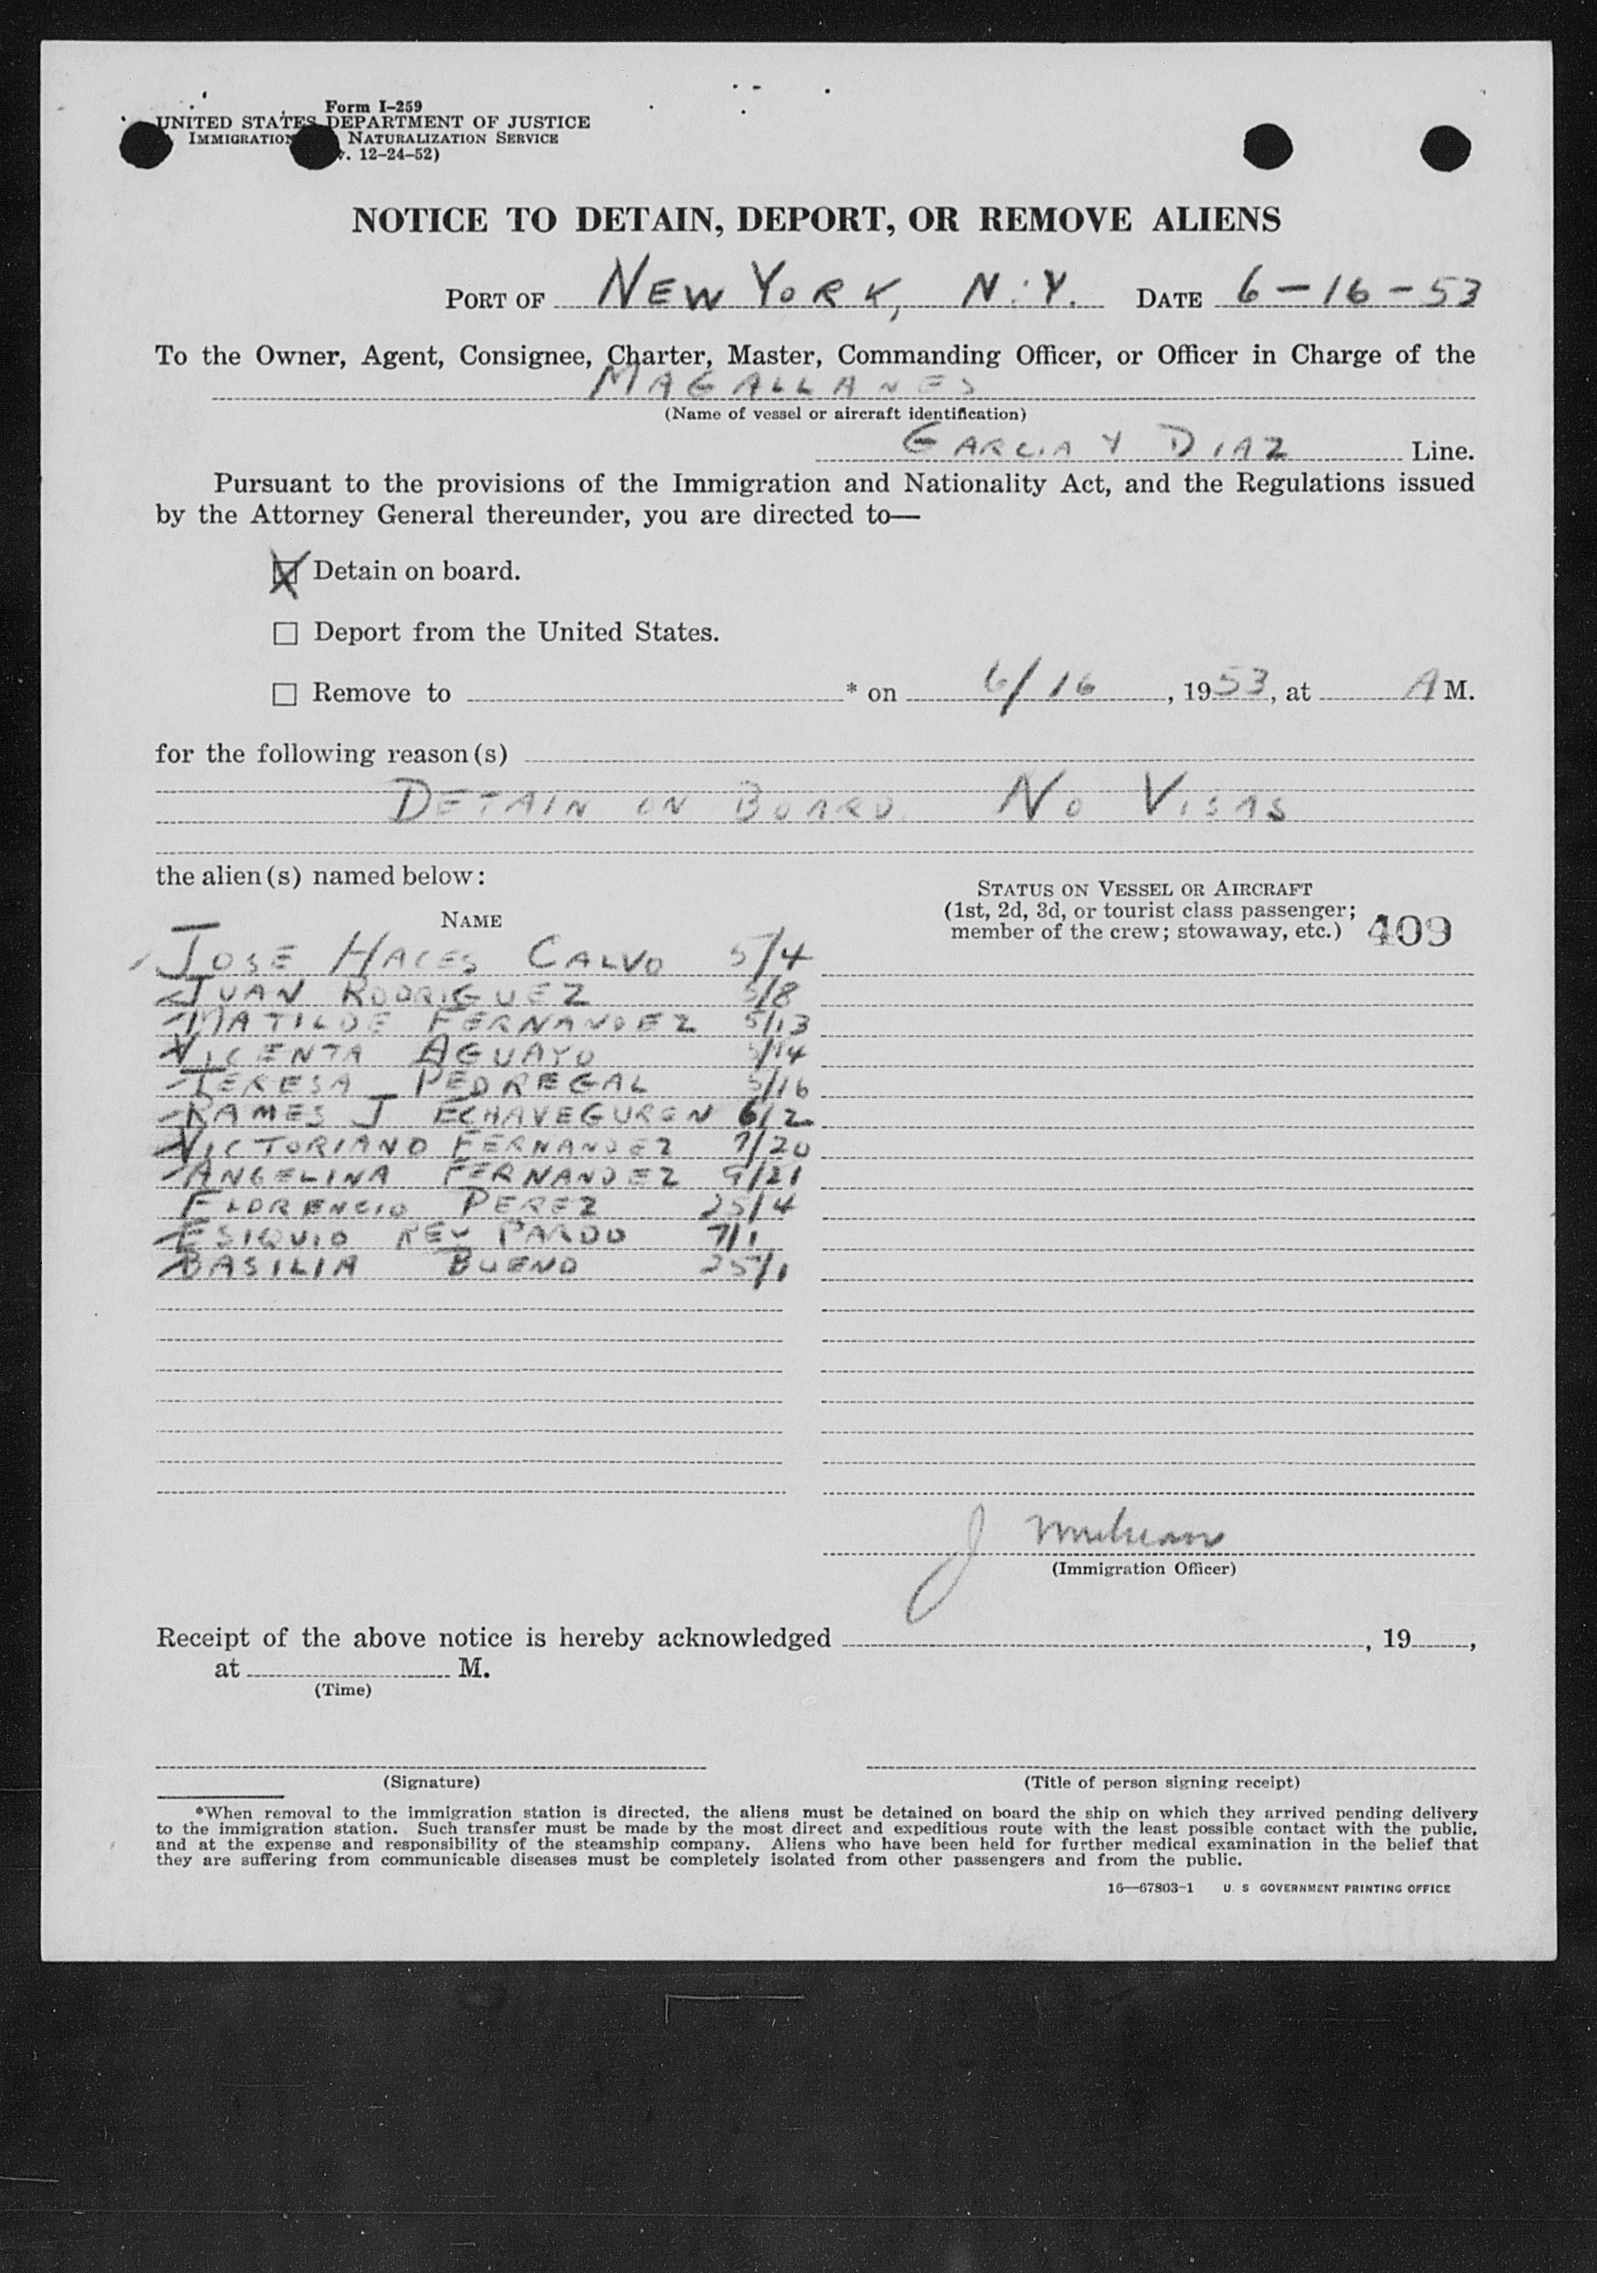 Form I-259
UNITED STATES DEPARTMENT OF JUSTICE
IMMIGRATION NATURALIZATION SERVICE
. 12-24-52)
NOTICE TO DETAIN, DEPORT, OR REMOVE ALIENS
PORT OF NEW YORK, N.Y. DATE 6-16-53
To the Owner, Agent, Consignee, Charter, Master, Commanding Officer, or Officer in Charge of the
MAGALLANES
(Name of vessel or aircraft identification)
GARCIA Y DIAZ Line.
Pursuant to the provisions of the Immigration and Nationality Act, and the Regulations issued
by the Attorney General thereunder, you are directed to—
☒ Detain on board.
☐ Deport from the United States.
☐ Remove to * on 6/16, 1953, at A M.
for the following reason(s)
DETAIN ON BOARD. NO VISAS
the alien(s) named below:
STATUS ON VESSEL OR AIRCRAFT
(1st, 2d, 3d, or tourist class passenger;
member of the crew; stowaway, etc.) 409
NAME
JOSE HACES CALVO 5/4
JUAN RODRIGUEZ 5/8
MATILDE FERNANDEZ 5/13
VICENTA AGUAYO 5/14
TERESA PEDREGAL 5/16
RAMES J ECHAVEGUREN 6/2
VICTORIANO FERNANDEZ 7/20
ANGELINA FERNANDEZ 9/21
FLORENCIO PEREZ 25/4
ESIQUIO REY PARDO 7/1
BASILIA BUENO 25/1
J
(Immigration Officer)
Receipt of the above notice is hereby acknowledged , 19 ,
at M.
(Time)
(Signature) (Title of person signing receipt)
*When removal to the immigration station is directed, the aliens must be detained on board the ship on which they arrived pending delivery
to the immigration station. Such transfer must be made by the most direct and expeditious route with the least possible contact with the public,
and at the expense and responsibility of the steamship company. Aliens who have been held for further medical examination in the belief that
they are suffering from communicable diseases must be completely isolated from other passengers and from the public.
16—67803-1 U. S. GOVERNMENT PRINTING OFFICE